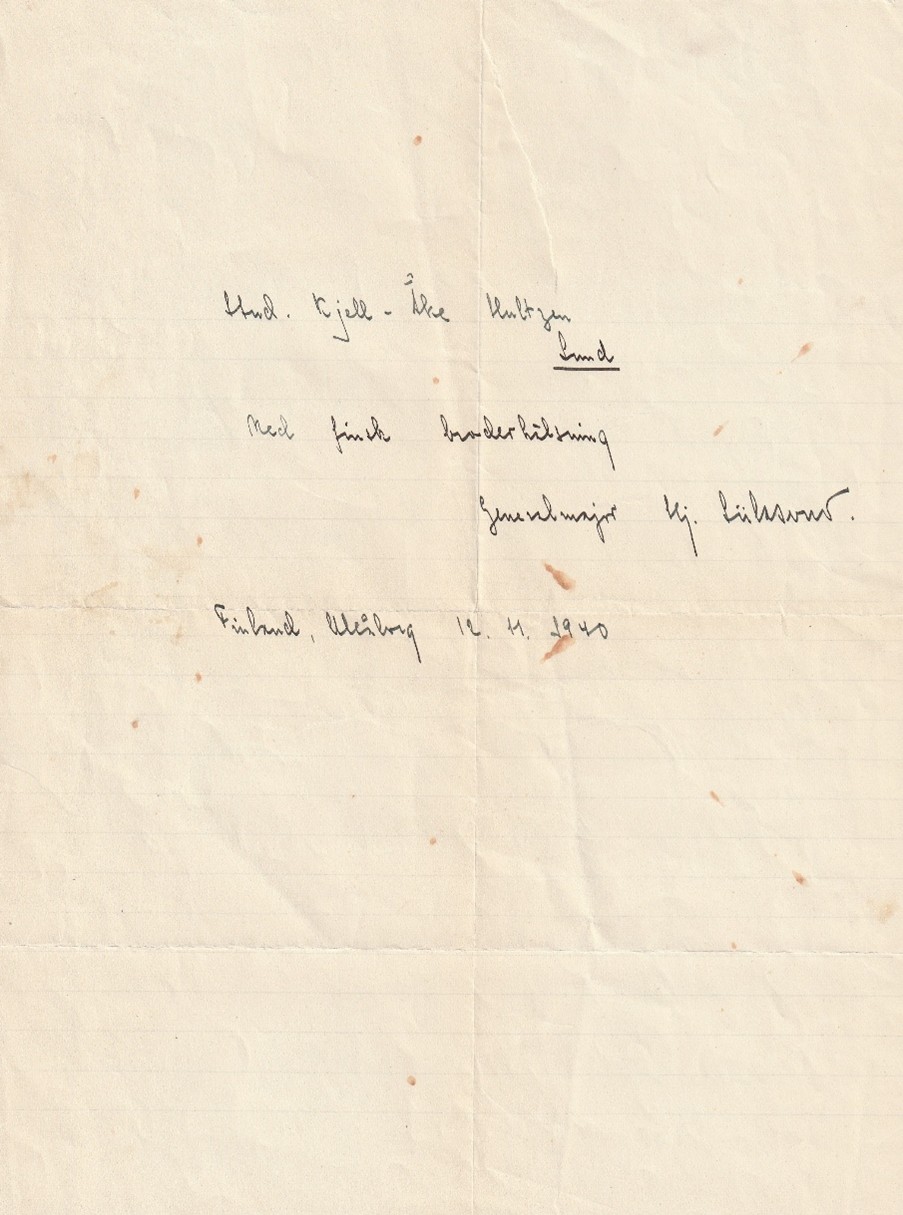 Stud. Kjell-Åke Hultzen
Lund
Med finsk broderhälsning
Generalmajor Hj. Siilasvuo.
Finland, Uleåborg 12. 11. 1940